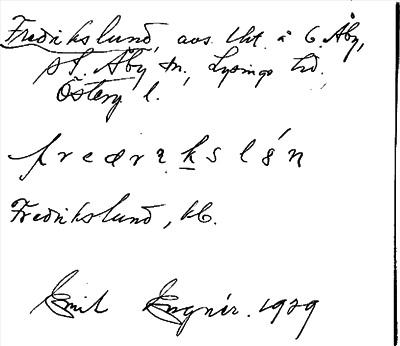 Fredrikslund, avs. lht. å G. Åby,
på S. Åby sn., Lysings hd.,
Österg. l.
fredrɩkslȣ́n
Fredrikslund, bl.
Emil Engnér. 1929